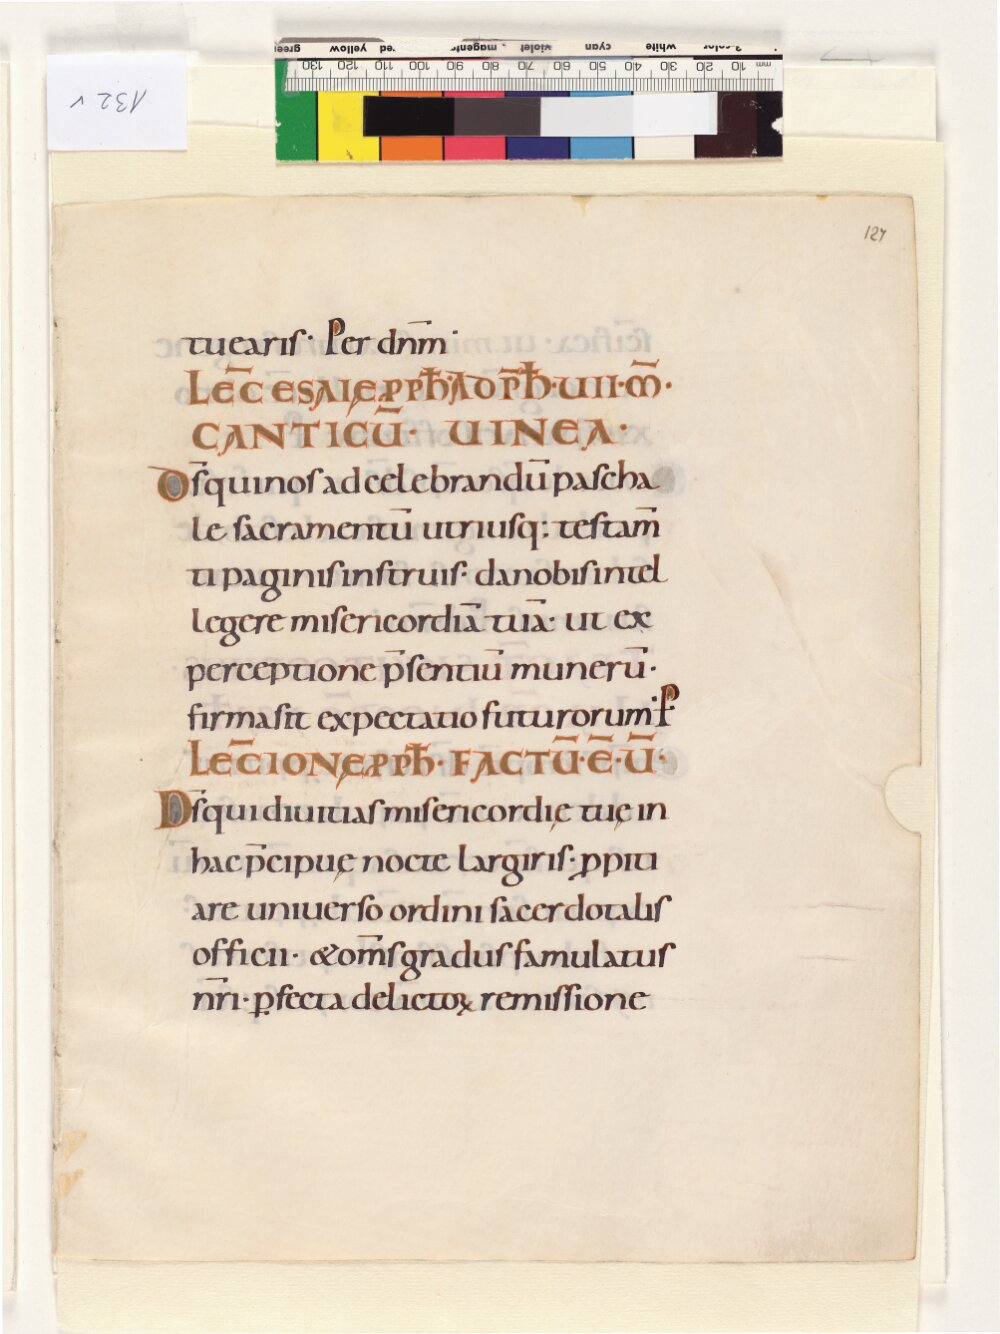 132 v
green yellow red magenta violet cyan white 3-color
130 120 110 100 90 80 70 60 50 40 30 20 10 mm
127
tuearis· Per dn̄m
LEC̄ ESAIĘ PPH̄· AD PPH̄· UII· M̄·
CANTICŪ· UINEA·
Ds̄ qui nos ad celebrandū pascha
le sacramentū utriusq: testam̄
ti paginis instruis· da nobis intel
legere misericordiā tuā· ut ex
perceptione p̄sentiū munerū·
firma sit expectatio futurorum· P
LEC̄IONE PPH̄· FACTŪ· Ē· Ū·
Ds̄ qui diuitias misericordię tuę in
hac p̄cipuę nocte largiris· ꝓpiti
are uniuerso ordini sacerdotalis
officii· & om̄s gradus famulatus
nr̄i· ꝑfecta delictoꝝ remissione